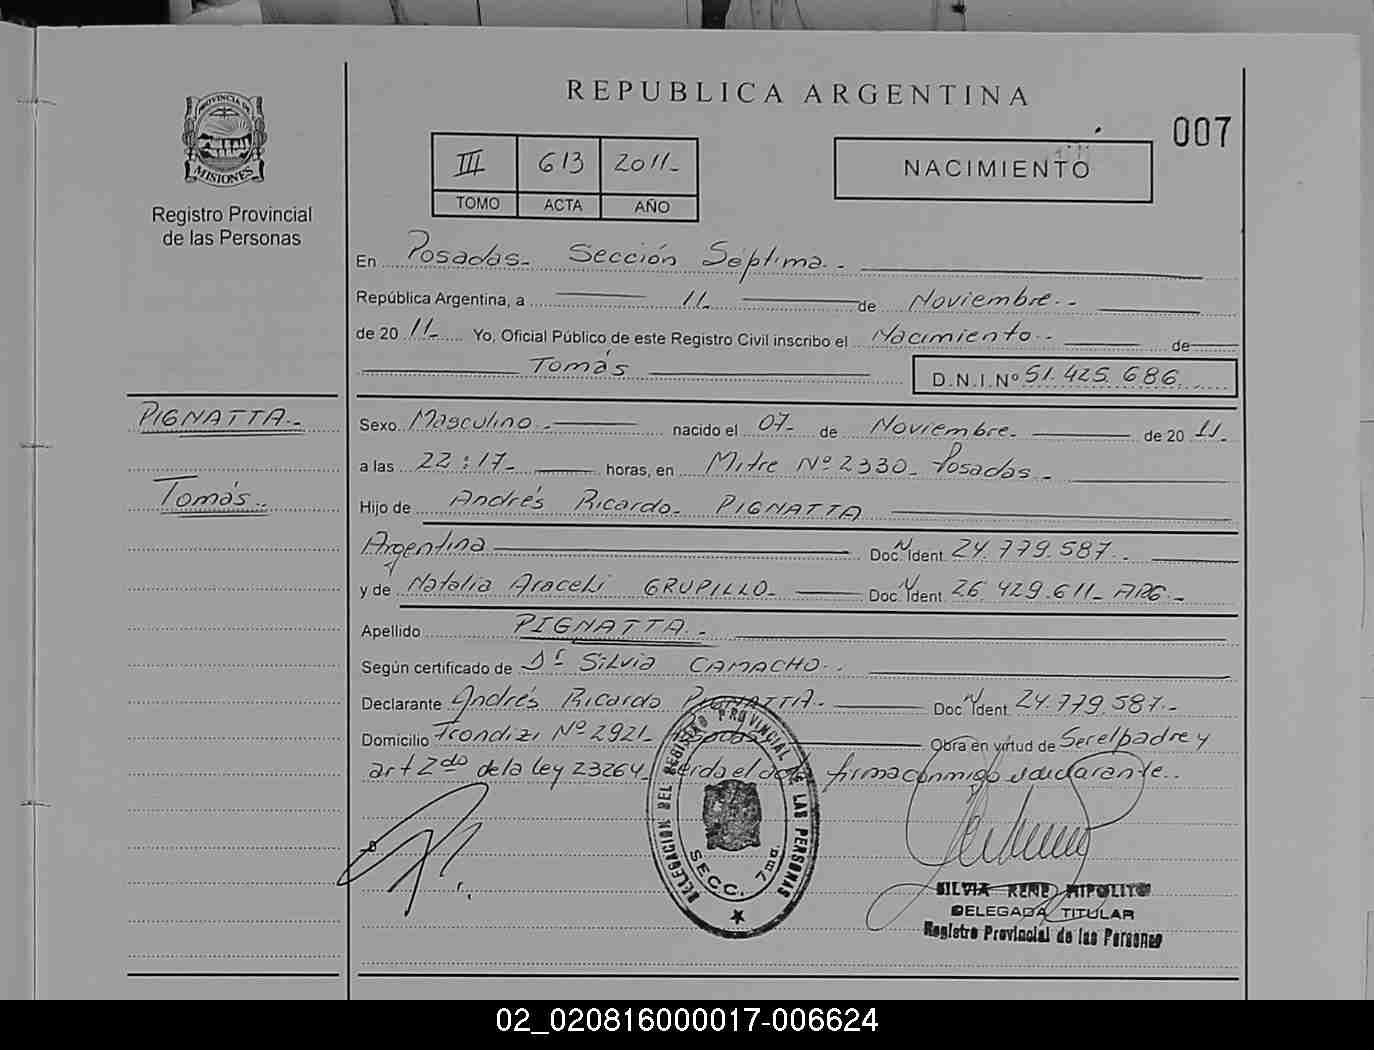 REPUBLICA ARGENTINA
007
PROVINCIA DE
MISIONES
Registro Provincial
de las Personas
III 613 2011-
TOMO ACTA AÑO
NACIMIENTO
En Posadas- Sección Séptima.-
República Argentina, a 11 de Noviembre.-
de 20 11- Yo, Oficial Público de este Registro Civil inscribo el Nacimiento.- de
Tomás
D.N.I.Nº 51.425.686
PIGNATTA.-
Tomás.-
Sexo Masculino.- nacido el 07- de Noviembre.- de 20 11.-
a las 22:17- horas, en Mitre Nº 2330- Posadas.-
Hijo de Andrés Ricardo- PIGNATTA
Argentina Doc. N Ident. 24.779.587.-
y de Natalia Araceli GRUPILLO- Doc. N Ident. 26.429.611- ARG.-
Apellido PIGNATTA.-
Según certificado de Dra Silvia CAMACHO.-
Declarante Andrés Ricardo PIGNATTA.- Doc N Ident. 24.779.587.-
Domicilio Frondizi Nº 2921- Posadas Obra en virtud de Ser el padre y
art 2do de la ley 23264- firma conmigo el declarante.-
DELEGACION DEL REGISTRO PROVINCIAL DE LAS PERSONAS
SECC. 7ma.
SILVIA RENE HIPOLITO
DELEGADA TITULAR
Registro Provincial de las Personas
02_020816000017-006624